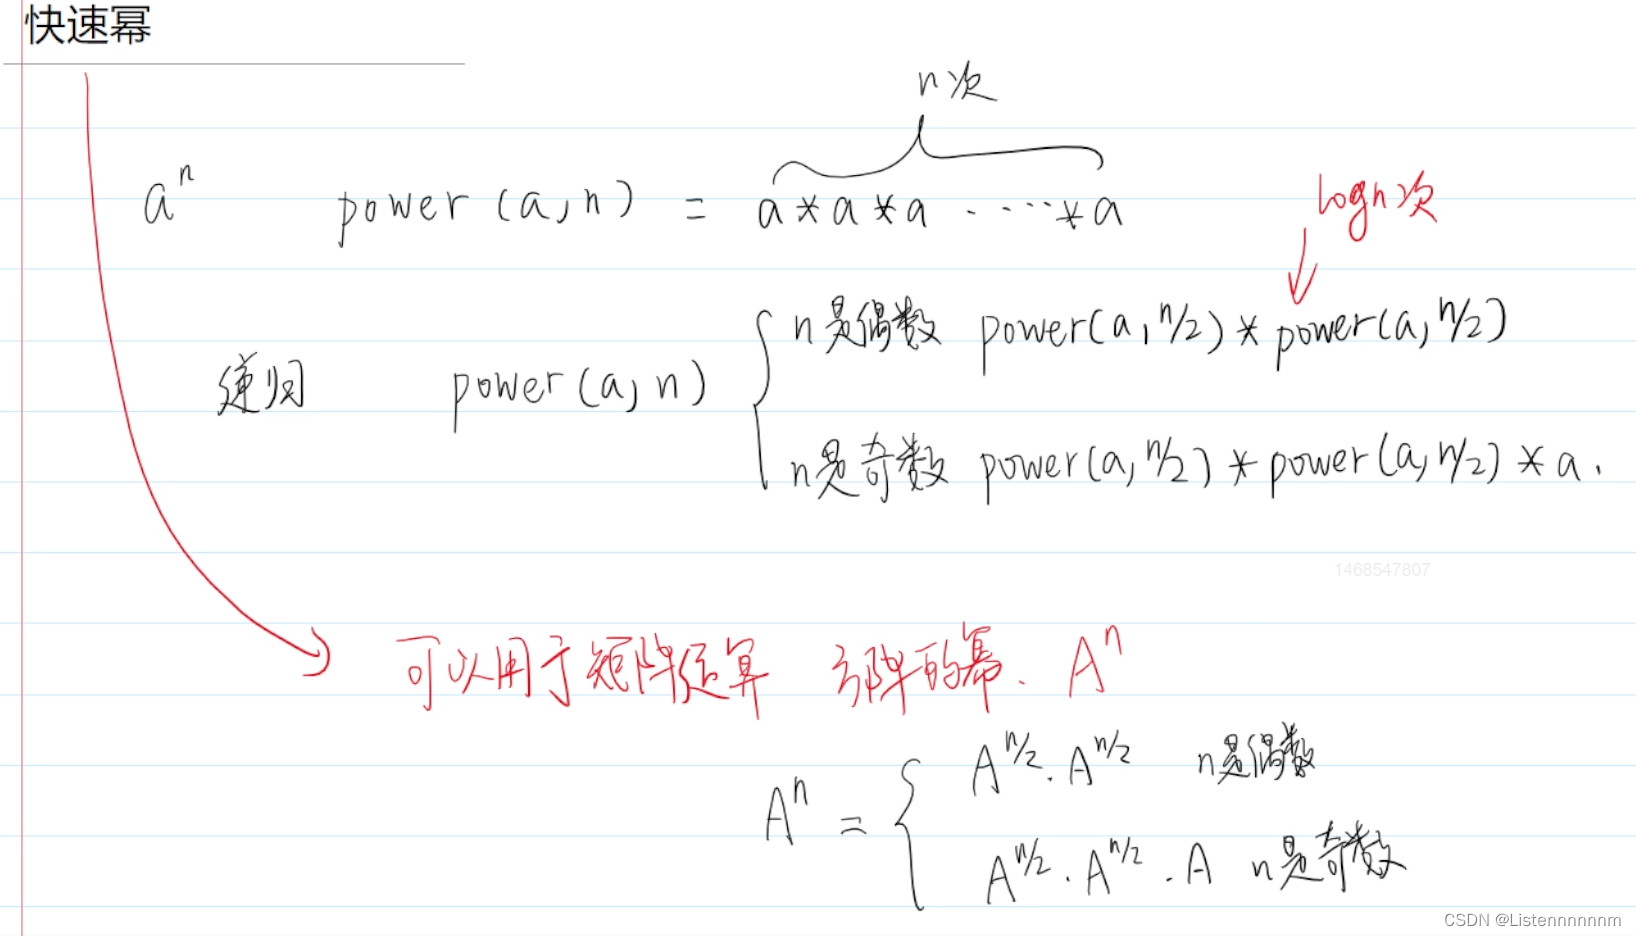 快速幂
n次
aⁿ power(a,n) = a*a*a.....*a
logn次
n是偶数 power(a,n/2)*power(a,n/2)
递归 power(a,n)
n是奇数 power(a,n/2)*power(a,n/2)*a.
1468547807
可以用于矩阵运算 方阵的幂. Aⁿ
A^n/2 . A^n/2 n是偶数
Aⁿ =
A^n/2 . A^n/2 . A n是奇数
CSDN @Listennnnnnm